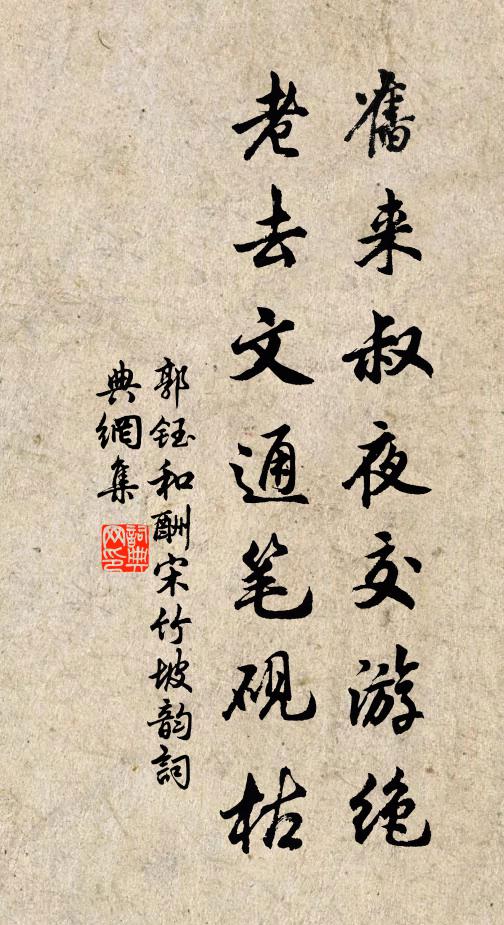 舊来叔夜交游绝
老去文通笔砚枯
郭钰和酬宋竹坡韵詞
典網集
詞典网印